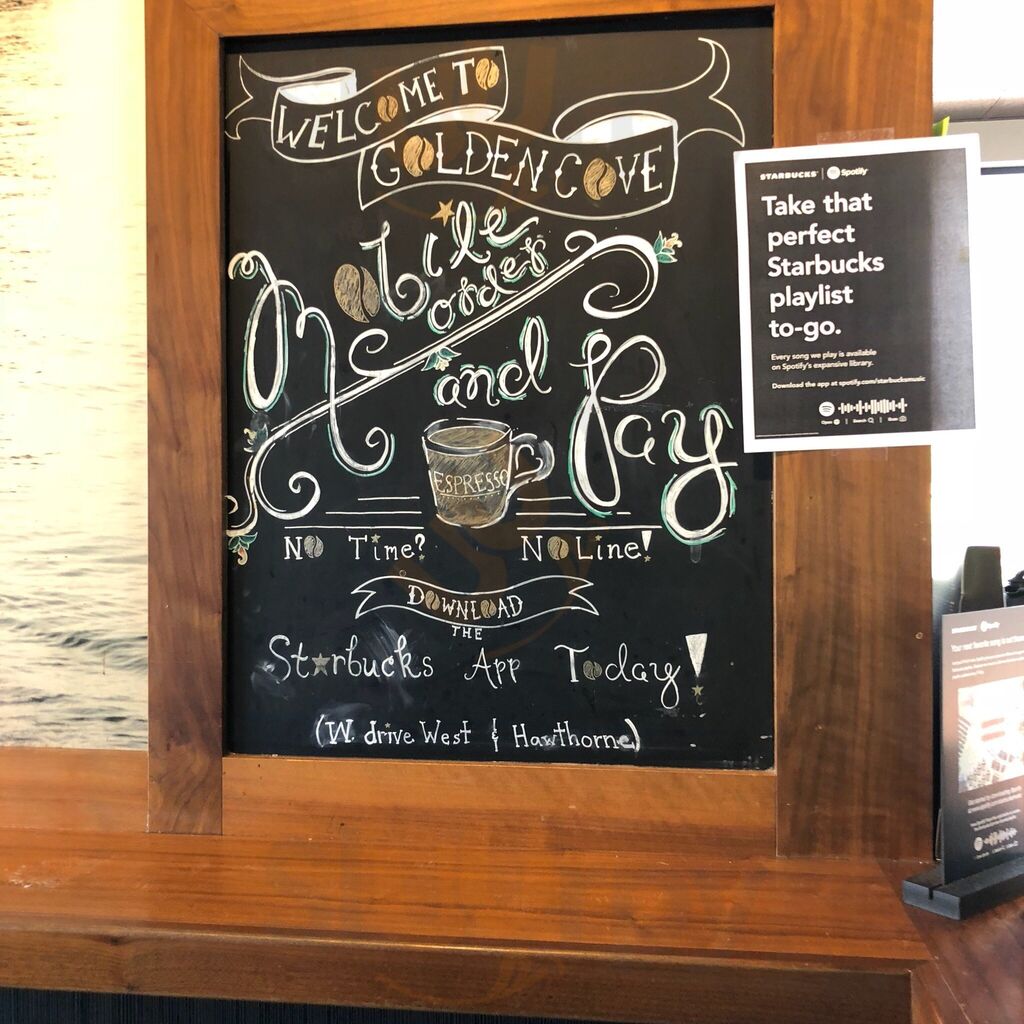 WELCOME TO
GOLDEN COVE
Mobile
order
and Pay
ESPRESSO
No Time? No Line!
DOWNLOAD
THE
Starbucks App Today!
(W. drive West & Hawthorne)
STARBUCKS | Spotify
Take that
perfect
Starbucks
playlist
to-go.
Every song we play is available
on Spotify's expansive library.
Download the app at spotify.com/starbucksmusic
Open | Search | Scan
STARBUCKS